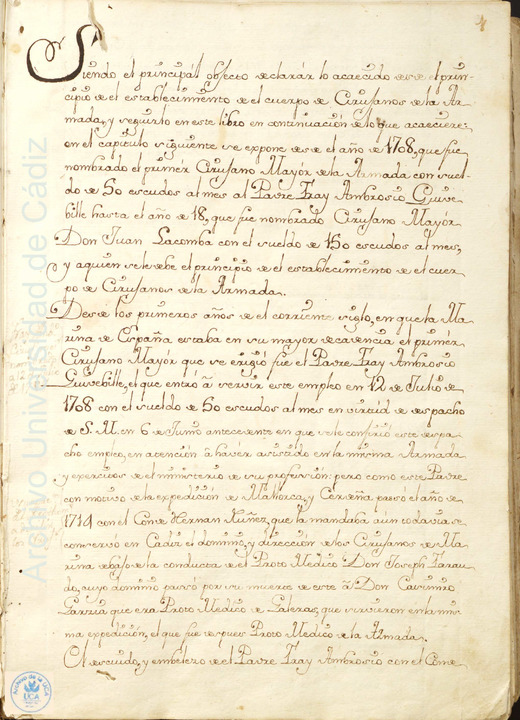 4
Siendo el principál objecto declarár lo acaecido desde el prin-
cipio de el establecimiento de el cuerpo de Cirujanos de la Ar-
mada, y seguirlo en este libro en continuación de lo que acaeciere:
en el capitulo siguiente se expone desde el año de 1708, que fue
nombrado el primér Cirujano Mayór de la Armada con suel-
do de 50 escudos al mes al Padre Fray Ambrosio Guive-
bille hasta el año de 18, que fue nombrado Cirujano Mayór
Don Juan Lacomba con el sueldo de 150 escudos al mes,
y aquien se le debe el principio de el establecimiento de el cuer-
po de Cirujanos de la Armada.
Desde los primeros años de el corriente siglo, en que la Ma-
rina de España estaba en su mayor decadencia el primér
Cirujano Mayór que se erigió fue el Padre Fray Ambrosio
Guivebille, el que entró á servir este empleo en 12 de Julio de
1708 con el sueldo de 50 escudos al mes en virtud de despacho
de S. M. en 6 de Junio antecedente en que se le confirió este despa-
cho empleo, en atención á havér asistido en la misma Armada
y exercitos de el ministerio de su profesión: pero como este Padre
con motivo de la expedición de Mallorca, y Cerdeña pasó el año de
1714 con el Conde Hernan Nuñez, que la mandaba aun todavia se
conservó en Cadiz el dominio, y dirección de los Cirujanos de Ma-
rina debajo de la conducta de el Proto Medico Don Joseph
do, cuyo dominio pasó por su muerte de este á Don Casimiro
que era Proto Medico de Galeras, que sirvieron en la mis-
ma expedición, el que fue despues Proto Medico de la Armada.
El descuido, y embelezo de el Padre Fray Ambrosio con el Conde
Archivo Universidad de Cadiz
Archivo de la UCA
UCA